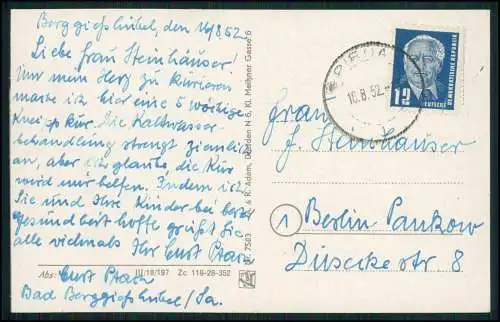 Berggießhübel, den 16/8.52.
Liebe Frau Steinhäuser!
Um mein Herz zu kurieren
mache ich hier eine 5 wöchige
Kneippkur. Die Kaltwasser-
behandlung strengt ziemlich
an, aber ich glaube, die Kur
wird mir helfen. Indem ich
Sie und Ihre Kinder bei bester
Gesundheit hoffe grüßt Sie
alle vielmals Ihr Curt
Abs: Curt
Bad Berggießhübel/Sa.
III/18/197 Zc 119-28-352
& R. Adam, Dresden N 6, Kl. Meißner Gasse 6
PIRNA
16.8.52.
12
DEUTSCHE
DEMOKRATISCHE REPUBLIK
Frau
J. Steinhäuser
1 Berlin Pankow
Dusekestr 8